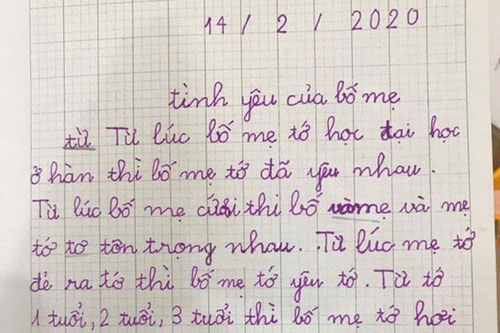 14 / 2 / 2020
tình yêu của bố mẹ
từ Từ lúc bố mẹ tớ học đại học
ở hàn thì bố mẹ tớ đã yêu nhau.
Từ lúc bố mẹ cưới thì bố và mẹ và mẹ
tớ tơ tôn trọng nhau. Từ lúc mẹ tớ
đẻ ra tớ thì bố mẹ tớ yêu tớ. Từ tớ
1 tuổi, 2 tuổi, 3 tuổi thì bố mẹ tớ hơi